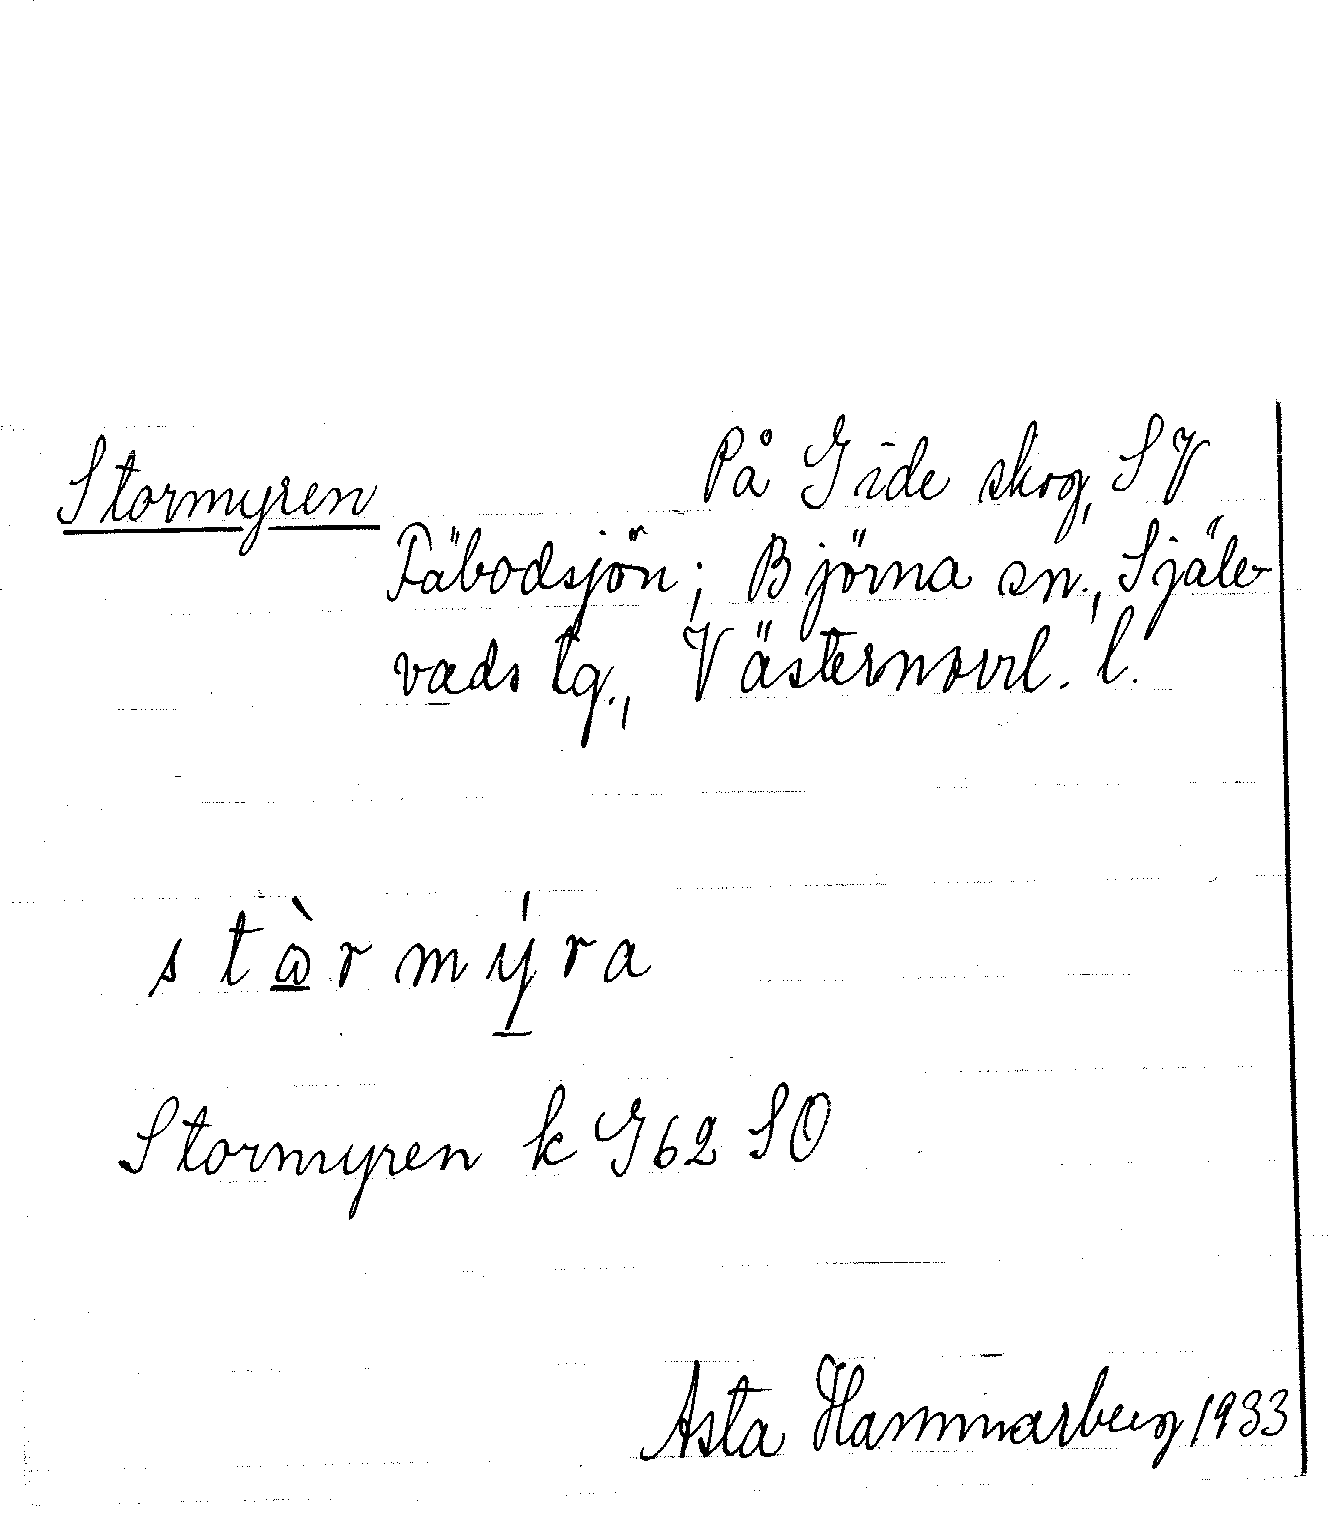 Stormyren På Gide skog, SV
Fäbodsjön; Björna sn., Själe-
vads tg., Västernorrl. l.
stὼ̲rmý̲ra
Stormyren k G62 SO
Asta Hammarberg 1933